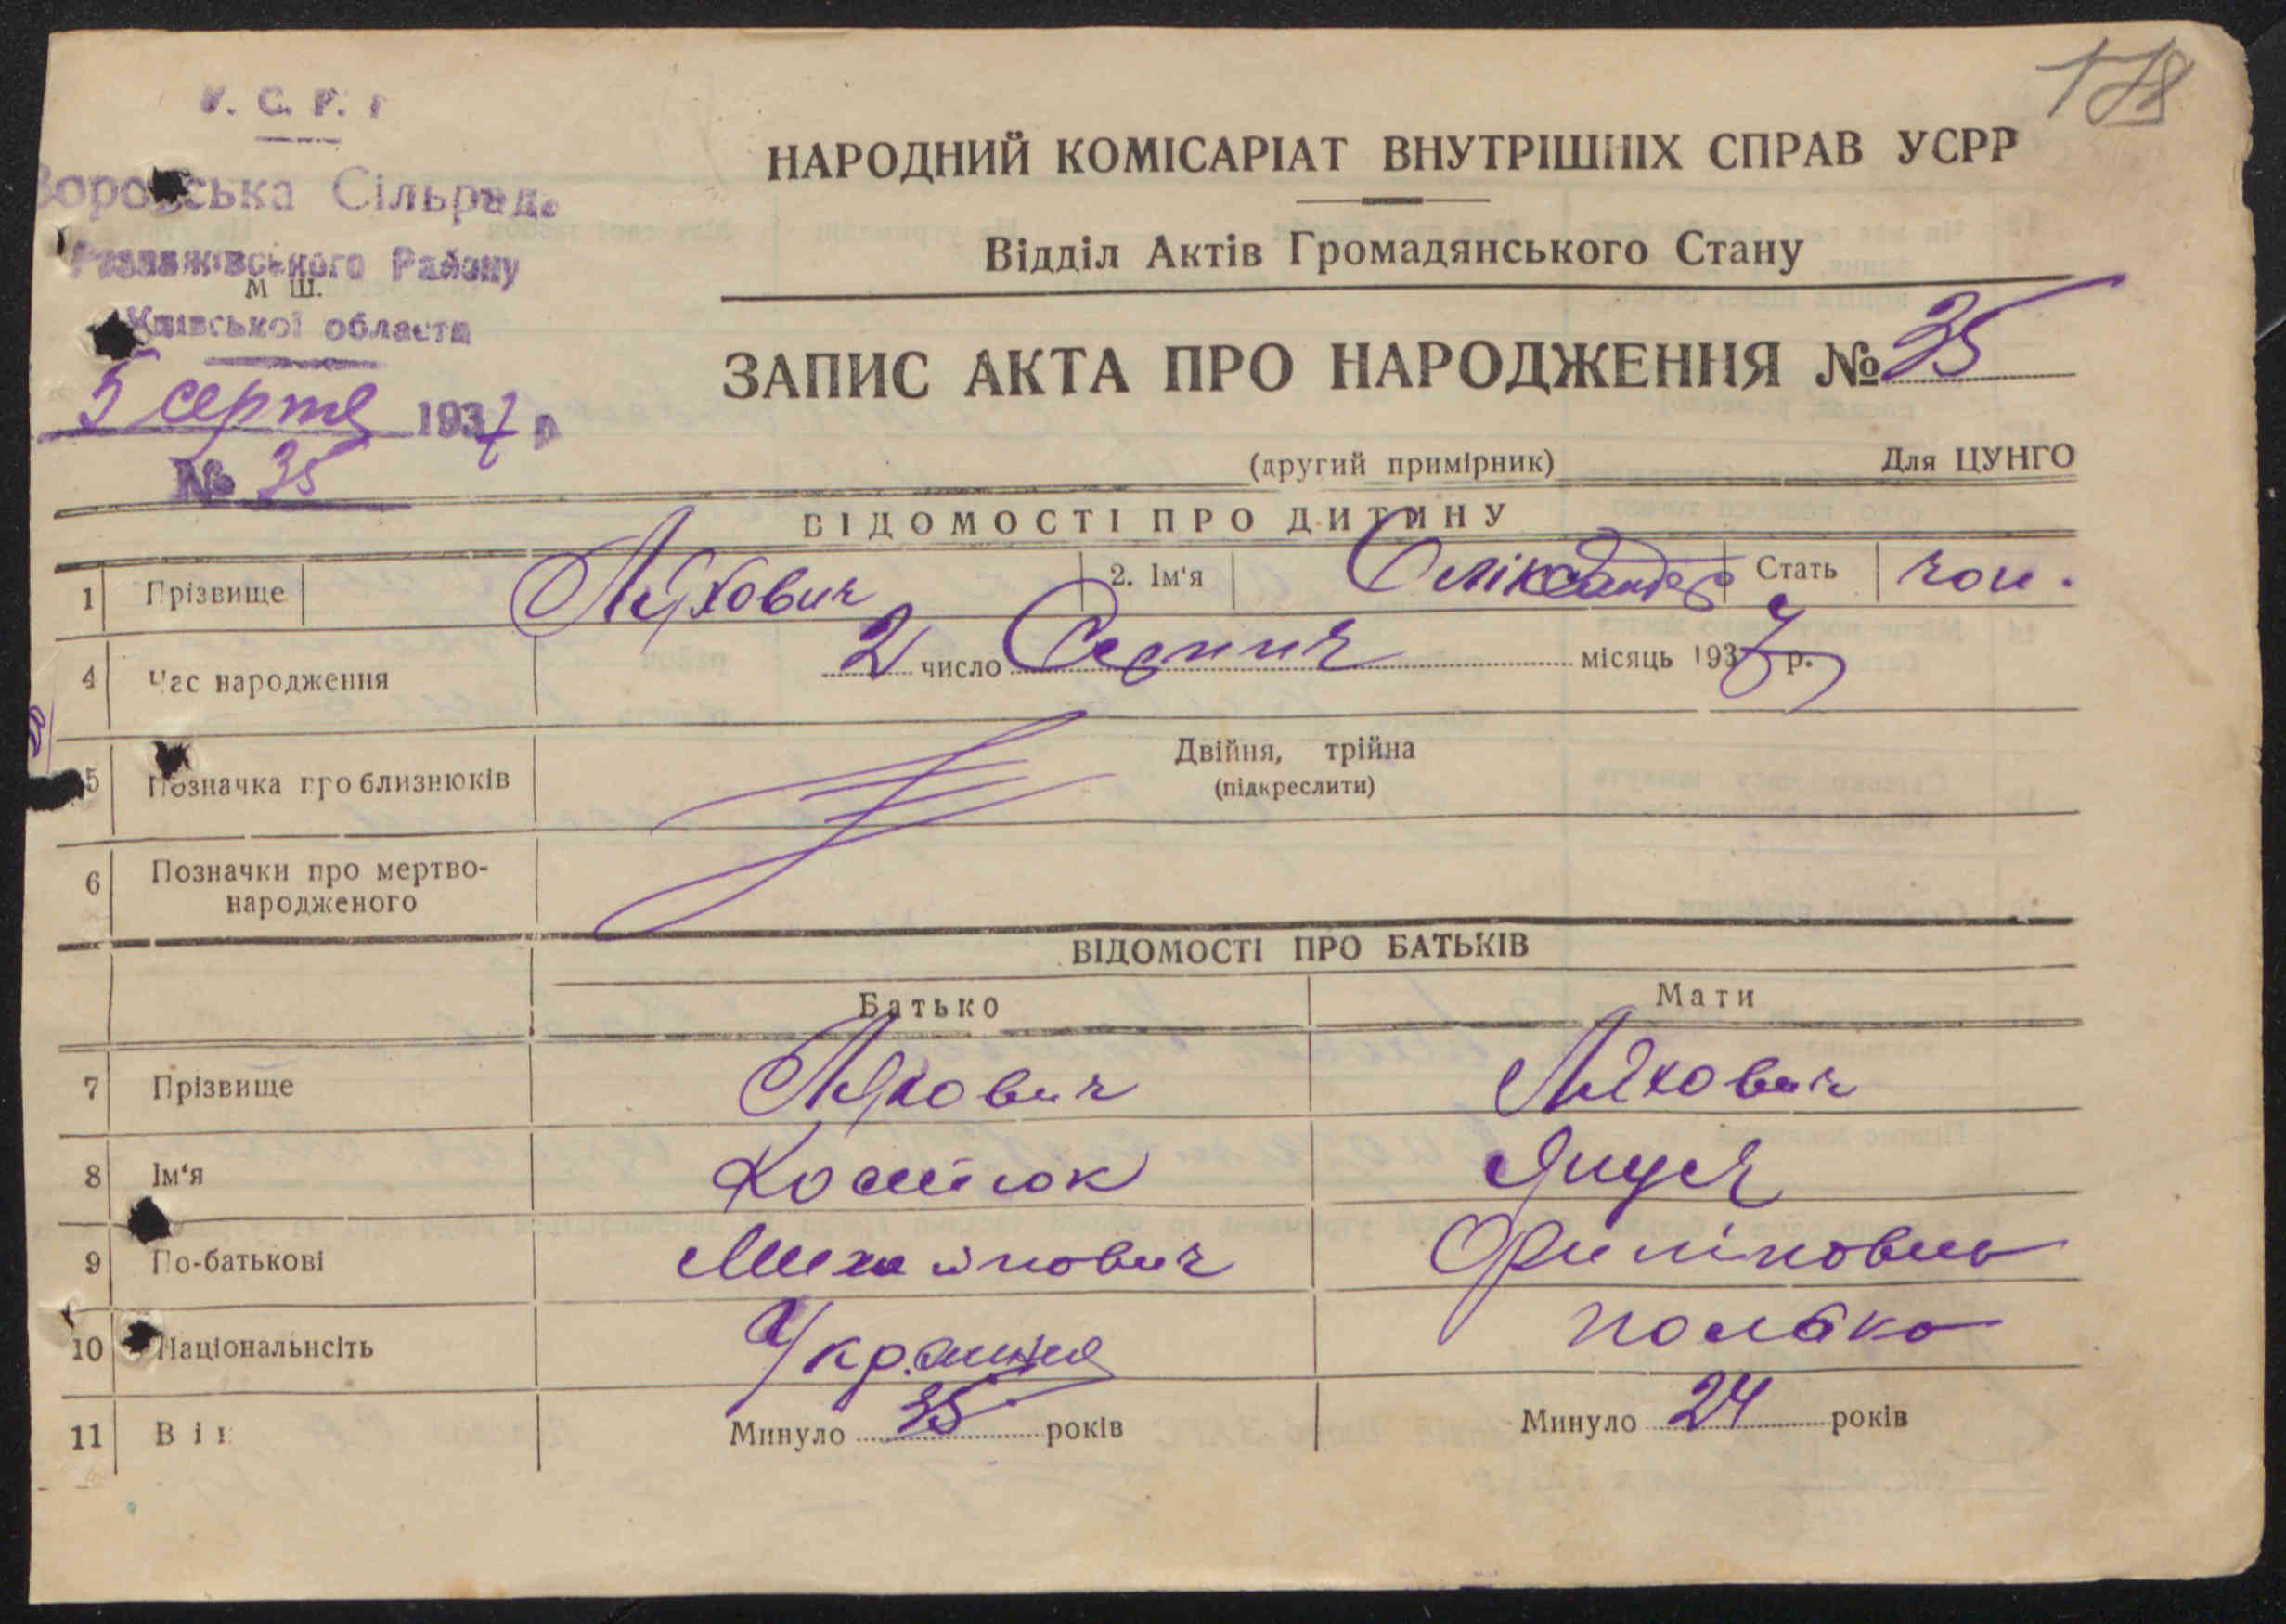 178
У. С. Р. Р
НАРОДНИЙ КОМІСАРІАТ ВНУТРІШНІХ СПРАВ УСРР
Сільрада
Розважівського Району
М Ш.
Київської області
Відділ Актів Громадянського Стану
ЗАПИС АКТА ПРО НАРОДЖЕННЯ № 35
5 серпня 1937 р
№ 35
(другий примірник) Для ЦУНГО
ВІДОМОСТІ ПРО ДИТИНУ
1 Прізвище Ляхович 2. Ім'я Оліксандер Стать чол.
4 Час народження 2 число Серпня місяць 1937 р.
5 Позначка про близнюків Двійня, трійна
(підкреслити)
6 Позначки про мертво-
народженого
ВІДОМОСТІ ПРО БАТЬКІВ
Батько Мати
7 Прізвище Ляхович Ляхович
8 Ім'я Костюк Януся
9 По-батькові Михайлович Филіповна
10 Національнсіть Україниць полька
11 Вік Минуло 35 років Минуло 24 років